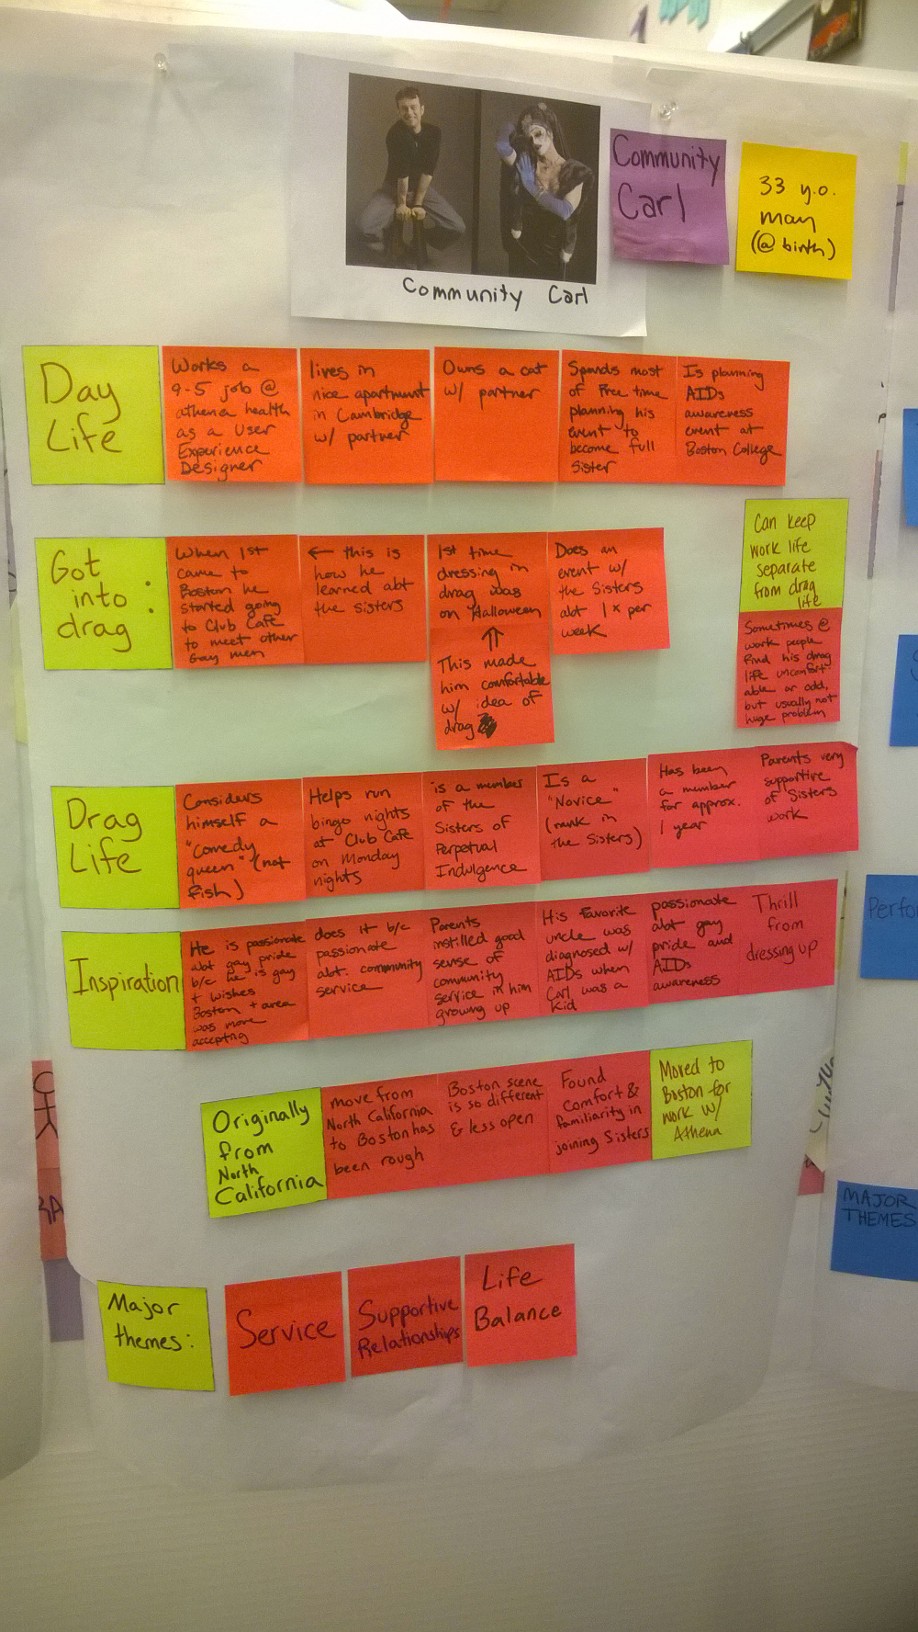 Community
Carl
33 y.o.
man
(@ birth)
Community Carl
Day
Life
Works a
9-5 job @
athena health
as a User
Experience
Designer
lives in
nice apartment
in Cambridge
w/ partner
Owns a cat
w/ partner
Spends most
of Free time
planning his
event to
become full
Sister
Is planning
AIDs
awareness
event at
Boston College
Got
into :
drag
When 1st
came to
Boston he
started going
to Club Café
to meet other
Gay men
← this is
how he
learned abt
the sisters
1st time
dressing in
drag was
on Halloween
↑
This made
him comfortable
w/ idea of
drag
Does an
event w/
the Sisters
abt 1x per
week
Can keep
work life
separate
from drag
life
Sometimes @
work people
find his drag
life uncomfort-
able or odd,
but usually not
huge problem
Drag
Life
Considers
himself a
"comedy
queen" (not
fish)
Helps run
bingo nights
at Club Café
on Monday
nights
is a member
of the
Sisters of
Perpetual
Indulgence
Is a
"Novice"
(rank in
the Sisters)
Has been
a member
for approx.
1 year
Parents very
supportive
of Sisters
work
Inspiration
He is passionate
abt gay pride
b/c he is gay
+ wishes
Boston + area
was more
accepting
does it b/c
passionate
abt. community
service
Parents
instilled good
sense of
community
service in him
growing up
His favorite
uncle was
diagnosed w/
AIDs when
Carl was a
kid
passionate
abt gay
pride and
AIDs
awareness
Thrill
from
dressing up
Originally
from
North
California
move from
North California
to Boston has
been rough
Boston scene
is so different
& less open
Found
Comfort &
familiarity in
joining Sisters
Moved to
Boston for
work w/
Athena
Major
themes:
Service
Supportive
Relationships
Life
Balance
Perfo
MAJOR
THEMES